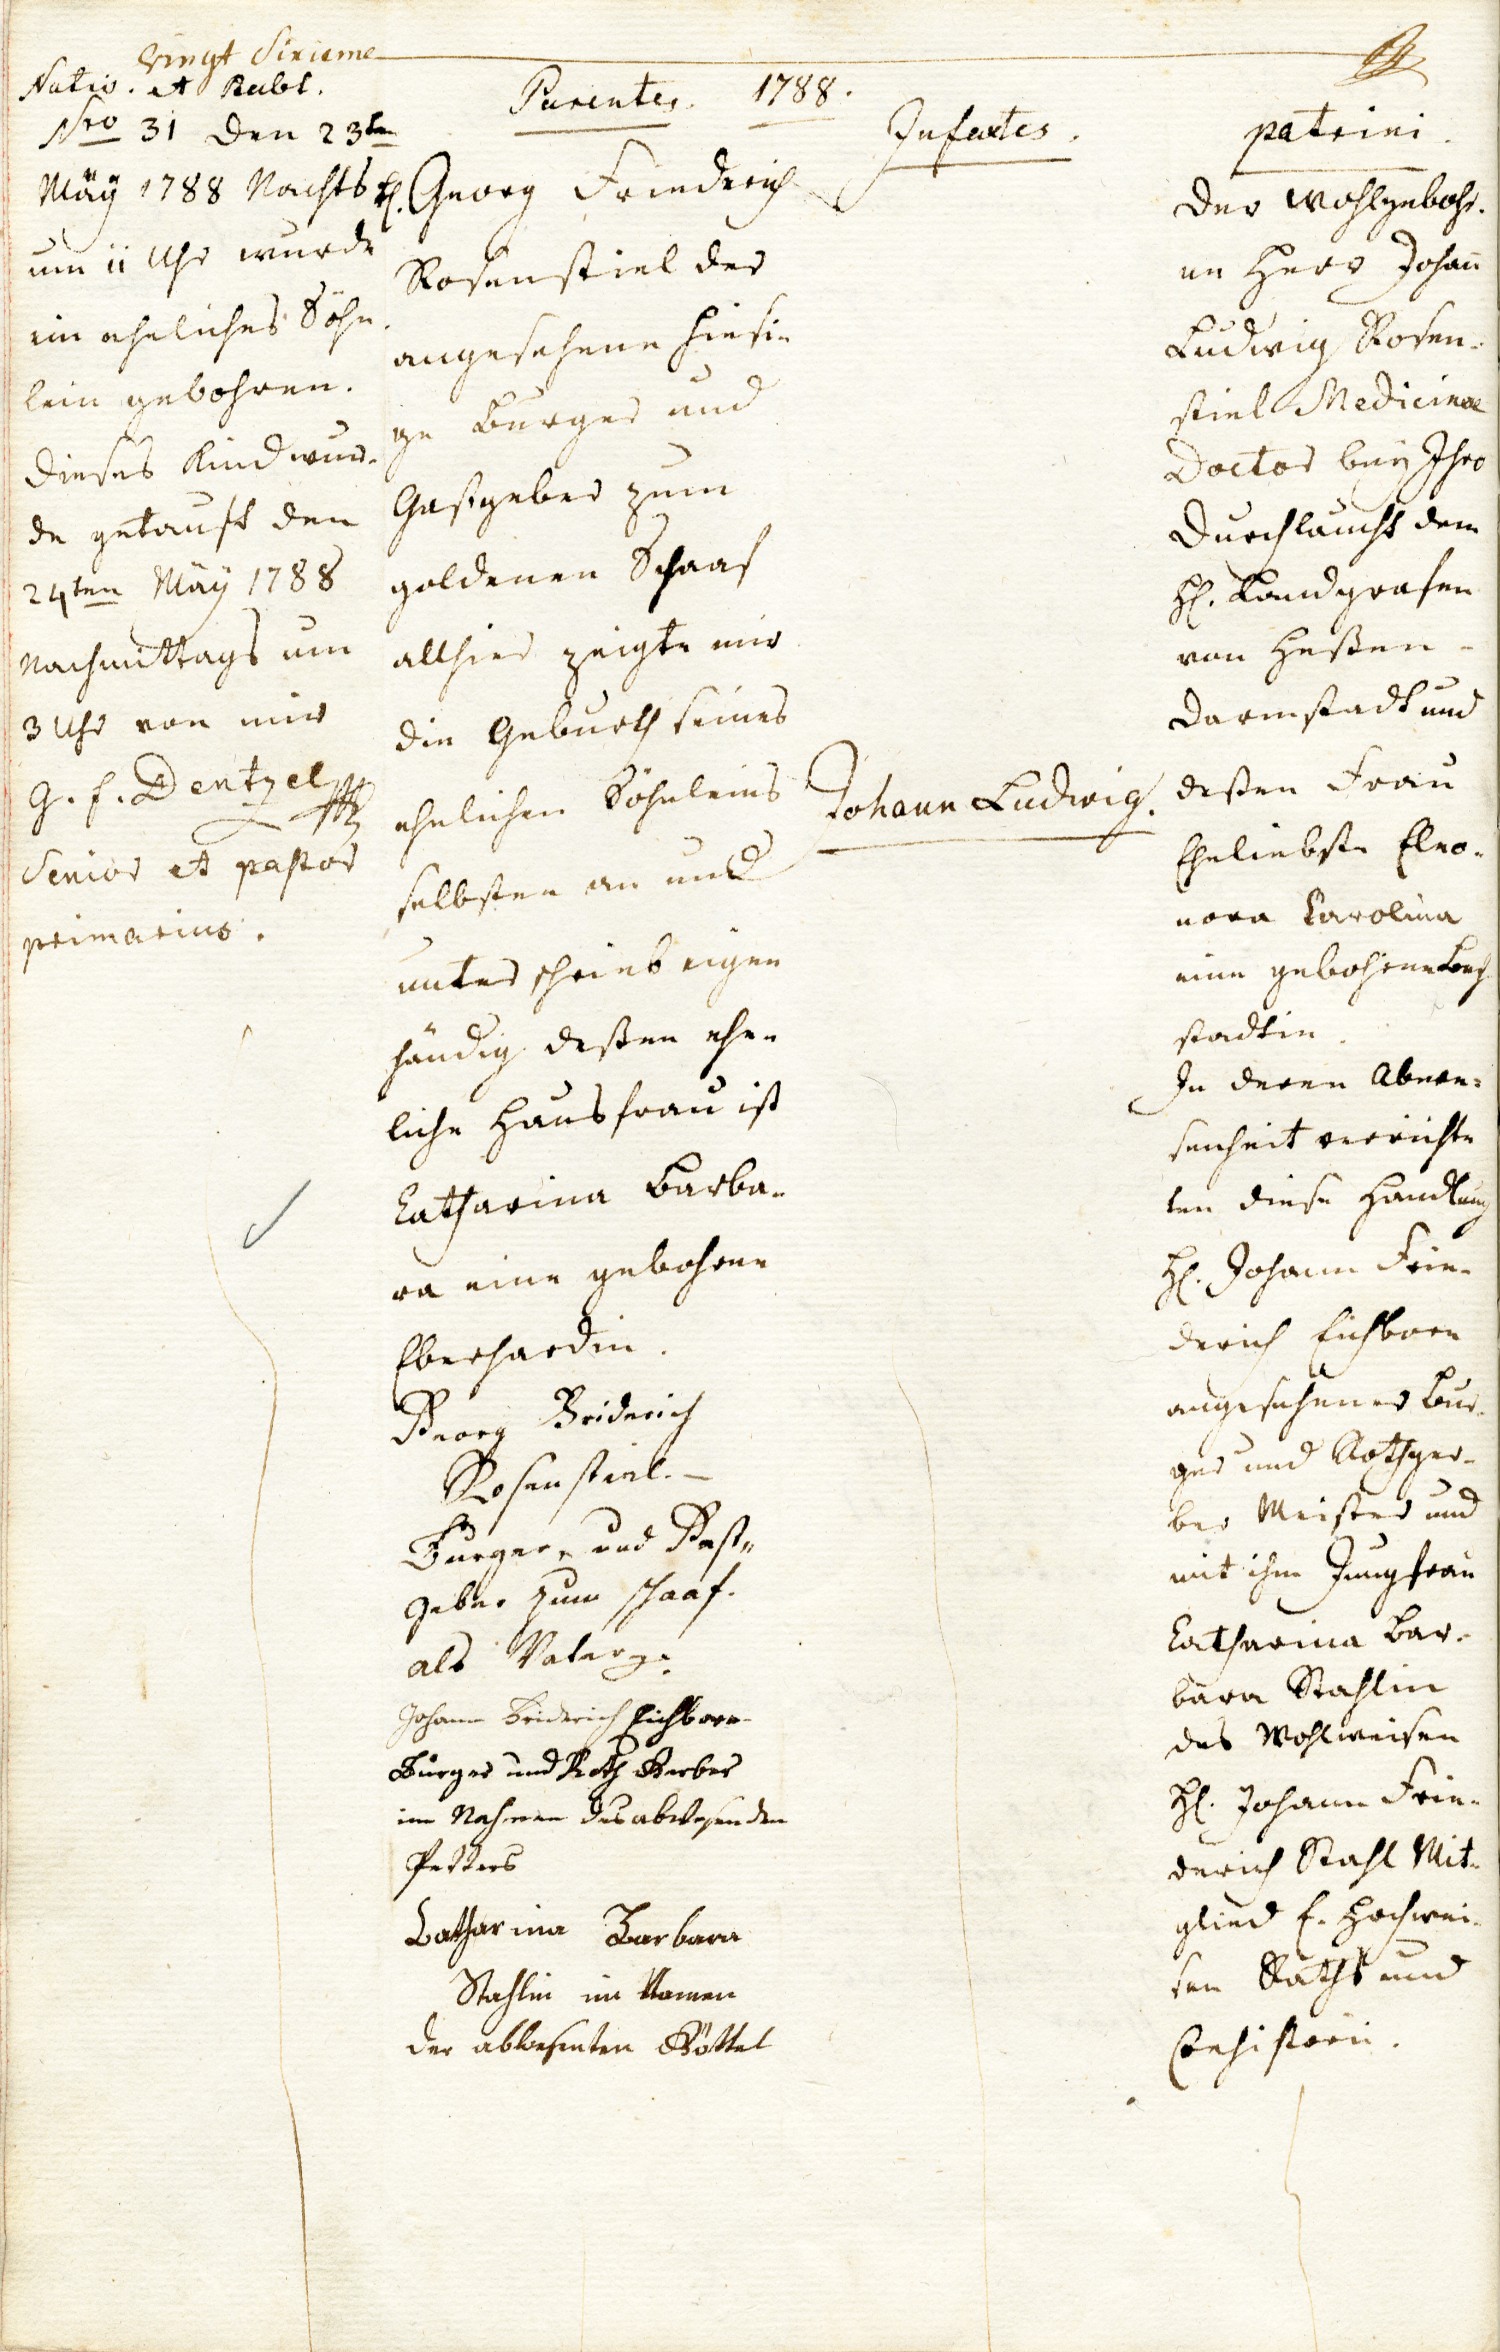 Vingt Sixieme
Natio. et Babt.
Nro 31 den 23ten
Mäÿ 1788 Nachts
um 11 Uhr wurde
ein eheliches Söhn-
lein gebohren.
dieses Kind wur-
de getauft den
24ten Mäÿ 1788
Nachmittags um
3 Uhr von mir
G. F. Dentzel
Senior et pastor
primarius.
Parentes. 1788.
H. Georg Friedrich
Rosenstiel der
angesehene hiesi-
ge Burger und
Gastgeber zum
goldenen Schaaf
allhier zeigte mir
die Geburth seines
ehelichen Söhnleins
selbsten an und
unterschrieb eigen
händig deßen ehe-
liche Hausfrau ist
Catharina Barba-
ra eine gebohrne
Eberhardin.
Georg Friderich
Rosenstiel.
Burger, und Gast-
geber zum schaaf.
als Vater
Johann Friderich Eichborn
Burger und Roth Gerber
im Nahmen des abwesenden
Petters
Catharina Barbara
Stahlin im Namen
der abwesenten Göttel
Infantes.
Johann Ludwig.
patrini.
der Wohlgebohr-
ne Herr Johann
Ludwig Rosen-
stiel Medicinae
Doctor beÿ Ihro
Durchlaucht dem
H. Landgrafen
von Heßen-
Darmstadt und
deßen Frau
Eheliebste Eleo-
nora Carolina
eine gebohrne
stadtin.
In deren Abwe-
senheit verrichte
ten diese Handlung
H. Johann Frie-
derich Eichborn
angesehener Bur-
ger und Rothger-
ber Meister und
mit ihm Jungfrau
Catharina Bar-
bara Stahlin
des Wohlweisen
H. Johann Frie-
derich Stahl Mit-
glied E. Hochwei-
sen Raths und
Consistorii.